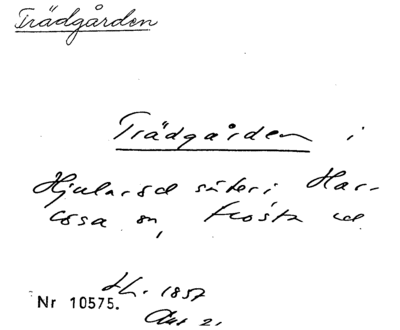 Trädgården
Trädgården i
Hjularöd säteri, Har-
lösa sn, Frosta hd
Lk. 1857
Nr 10575.
Akt 2.